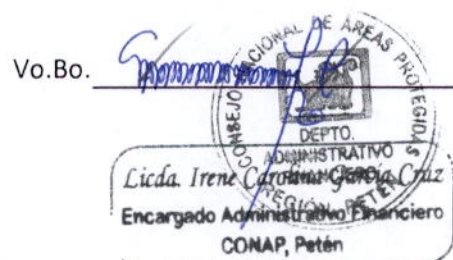 Vo.Bo.
CONSEJO NACIONAL DE AREAS PROTEGIDAS
DEPTO.
ADMINISTRATIVO
FINANCIERO
REGIÓN, PETÉN
Licda. Irene Carolina García Cruz
Encargado Administrativo Financiero
CONAP, Petén